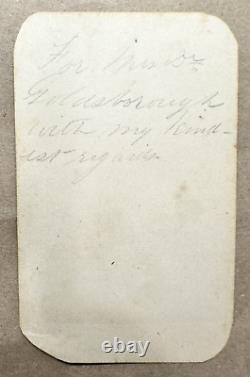 For
Goldsborough
with my kind-
est regards.